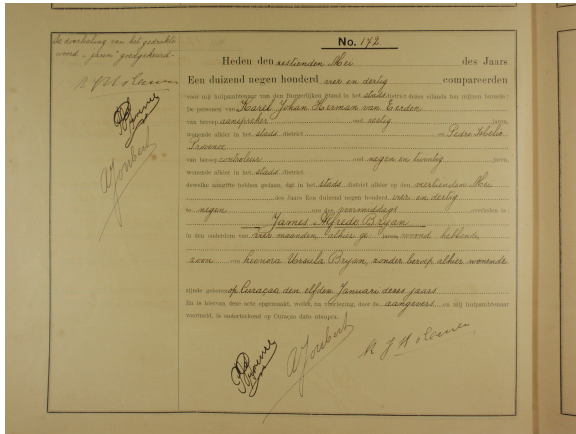 De doorhaling van het gedrukte
woord "jaren" goedgekeurd.
No. 172.
Heden den zestienden Mei des Jaars
Een duizend negen honderd vier en dertig compareerden
voor mij hulpambtenaar van den Burgerlijken stand in het stads district dezes eilands ten mijnen bureele:
De personen van Karel Johan Herman van Eerden
van beroep aanspreker oud veertig jaren,
wonende alhier in het stads district en Pedro
van beroep controleur oud negen en twintig jaren,
wonende alhier in het stads district
dewelke aangifte hebben gedaan, dat in het stads district alhier op den veertienden Mei
des Jaars Een duizend negen honderd vier en dertig
te negen ure des voormiddags overleden is:
James Alfredo Bryan
in den ouderdom van vier maanden, alhier ge jaren, woond hebbende,
zoon van Leonora Ursula Bryan, zonder beroep, alhier wonende
zijnde geboren op Curaçao den elfden Januari dezes jaars
En is hiervan deze acte opgemaakt, welke, na voorlezing, door de aangevers en mij hulpambtenaar
voormeld, is onderteekend op Curaçao dato utsupra.
A Joubert